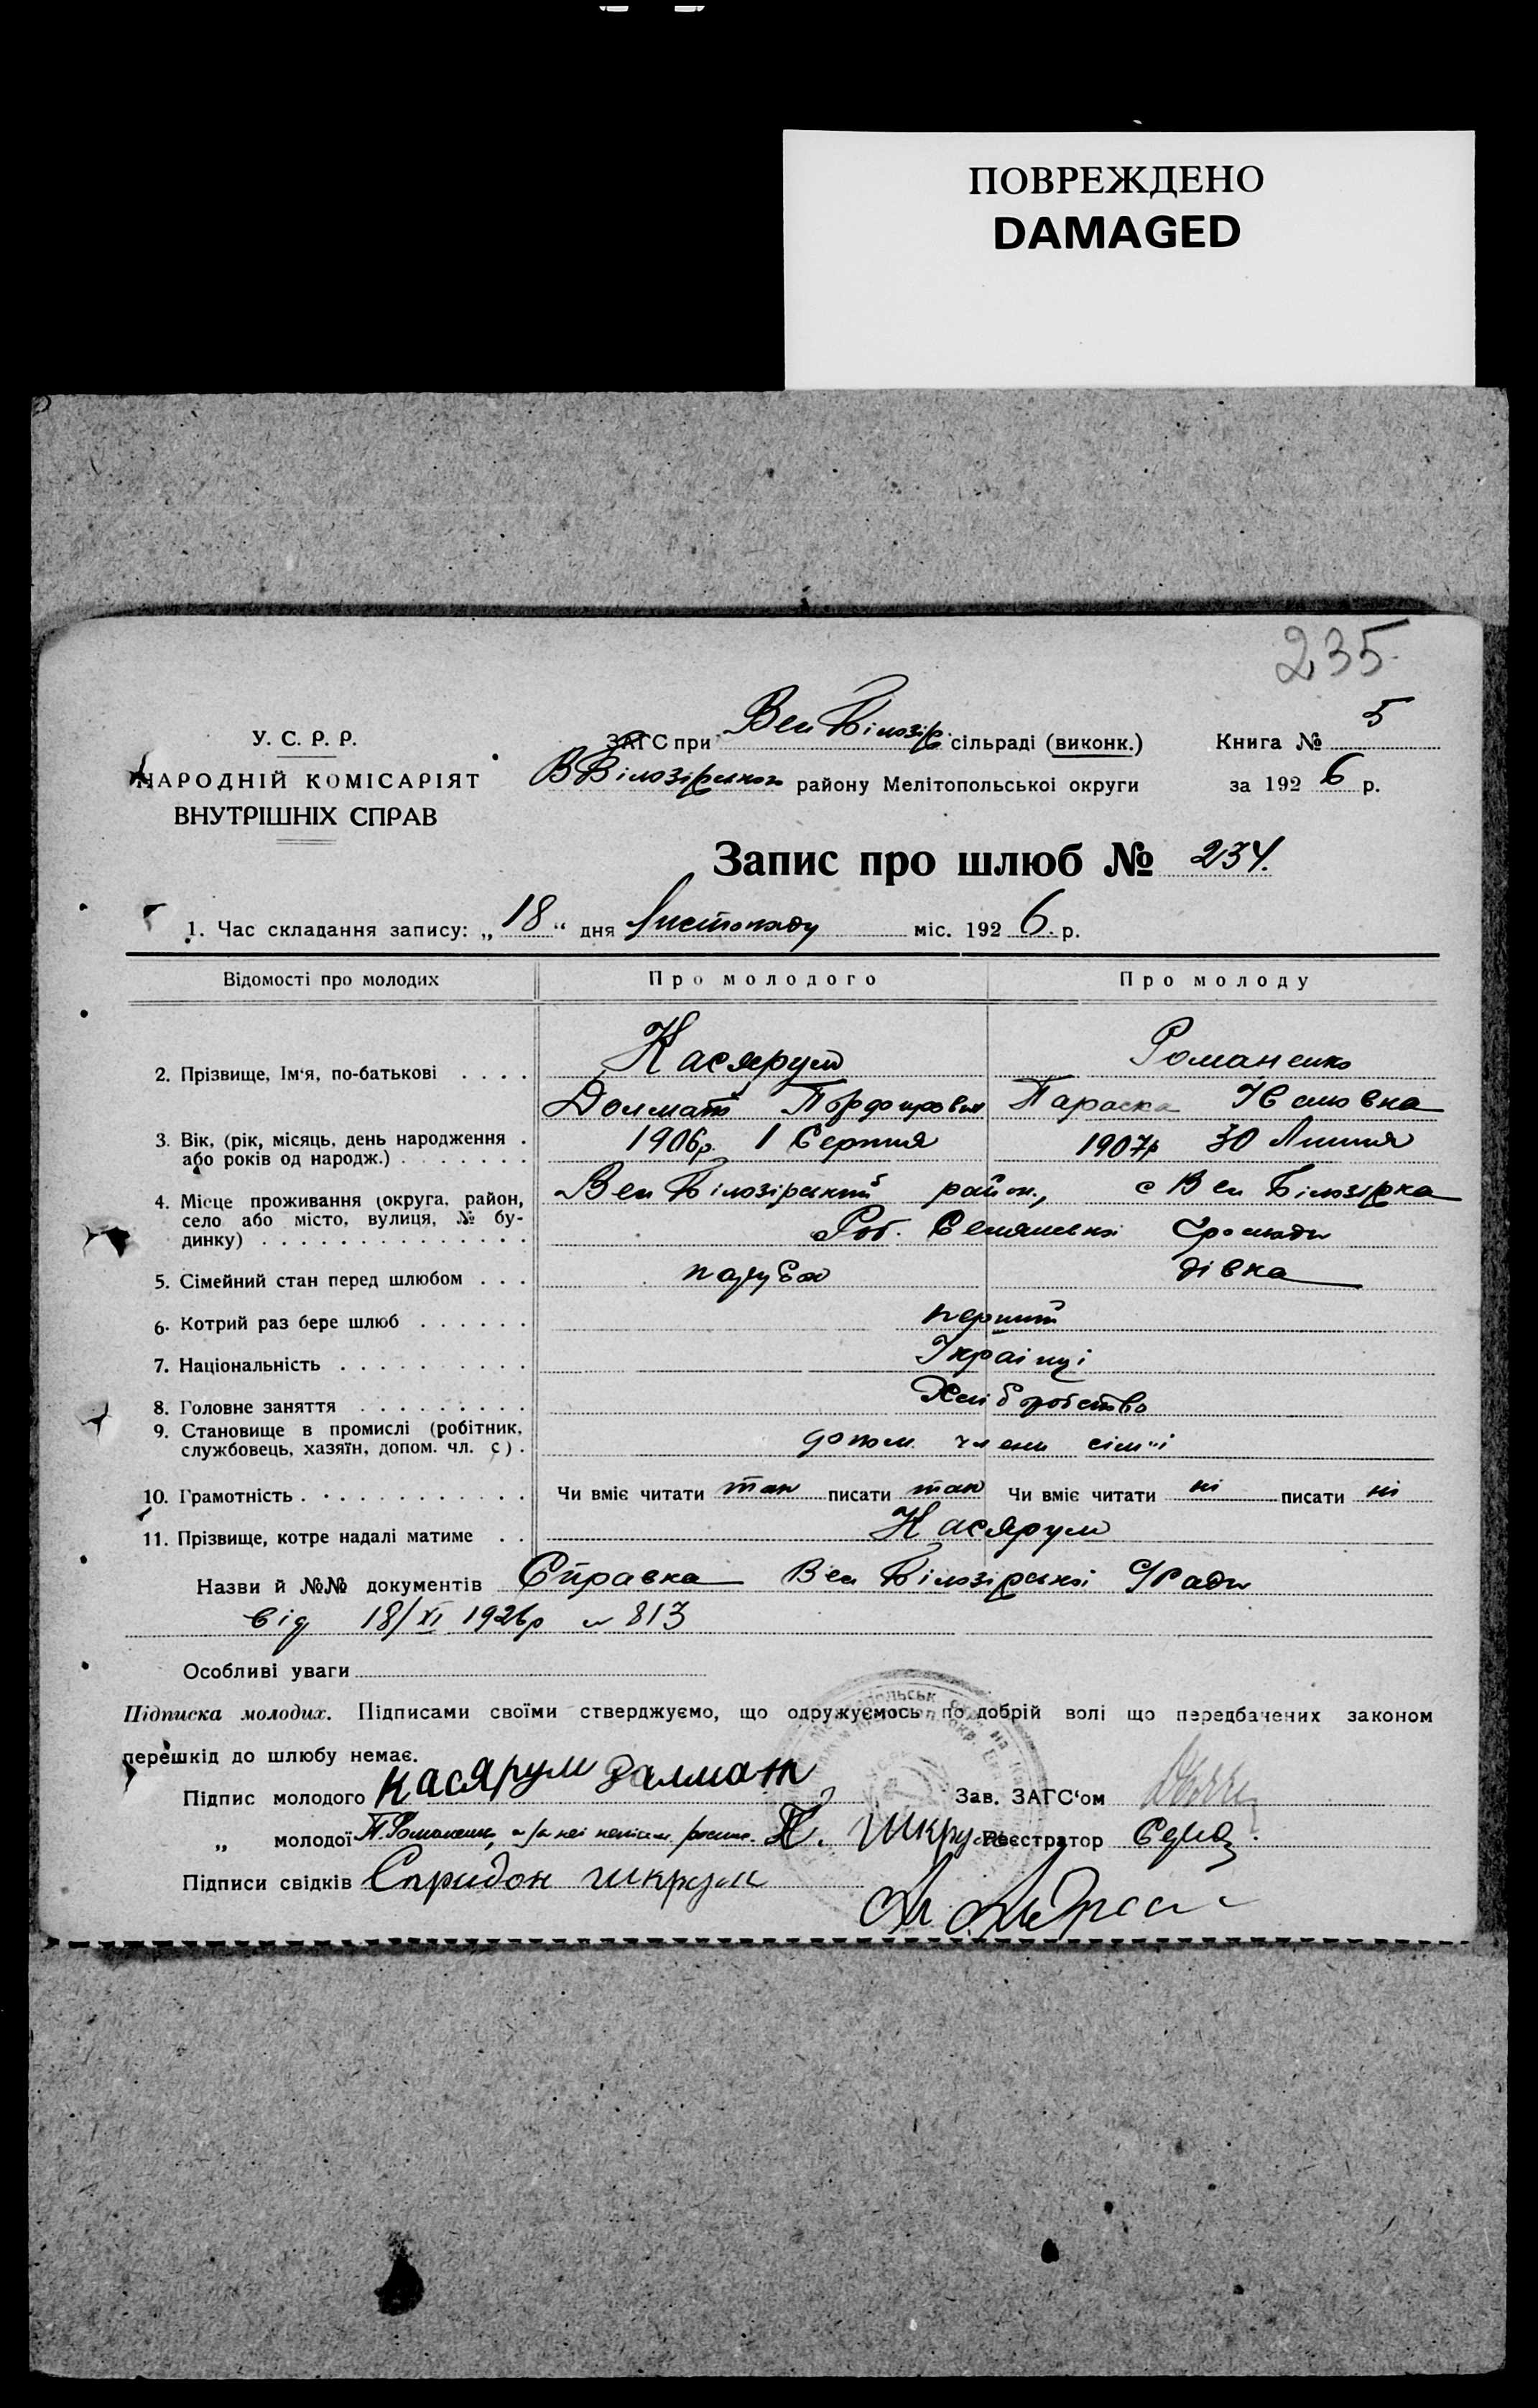 ПОВРЕЖДЕНО
DAMAGED
235
У. С. Р. Р.
НАРОДНІЙ КОМІСАРІЯТ
ВНУТРІШНІХ СПРАВ
ЗАГС при Вел Білозір сільраді (виконк.)
В Білозірського району Мелітопольської округи
Книга № 5
за 1926 р.
Запис про шлюб № 234.
1. Час складання запису: „18“ дня Листопаду міс. 1926. р.
Відомості про молодих Про молодого Про молоду
2. Прізвище, Ім‘я, по-батькові . . . . Касярум Романенко
Долмат Порфирович Параска
3. Вік, (рік, місяць, день народження . 1906р. 1 Серпня 1907р 30 Липня
або років од народж.) . . . . . . .
4. Місце проживання (округа, район, Вел Білозірський район., с Вел Білозірка
село або місто, вулиця, № бу-
динку) . . . . . . . . . . . . . . Громади
5. Сімейний стан перед шлюбом . . . парубок дівка
6. Котрий раз бере шлюб . . . . . . перший
7. Національність . . . . . . . . . . Українці
8. Головне заняття . . . . . . . . . Хліборобство
9. Становище в промислі (робітник,
службовець, хазяїн, допом. чл. с) . допом. члени сім'ї
10. Грамотність . . . . . . . . . . . . Чи вміє читати так писати так Чи вміє читати ні писати ні
11. Прізвище, котре надалі матиме . . Касярум
Назви й №№ документів Справка Вел Білозірської С/Ради
від 18/XI 1926р № 813
Особливі уваги
Підписка молодих. Підписами своїми стверджуємо, що одружуємось по добрій волі що передбачених законом
перешкід до шлюбу немає.
Підпис молодого Касярум Далмат Зав. ЗАГС‘ом
„ молодої П. Романенко, Реєстратор
Підписи свідків Спридон